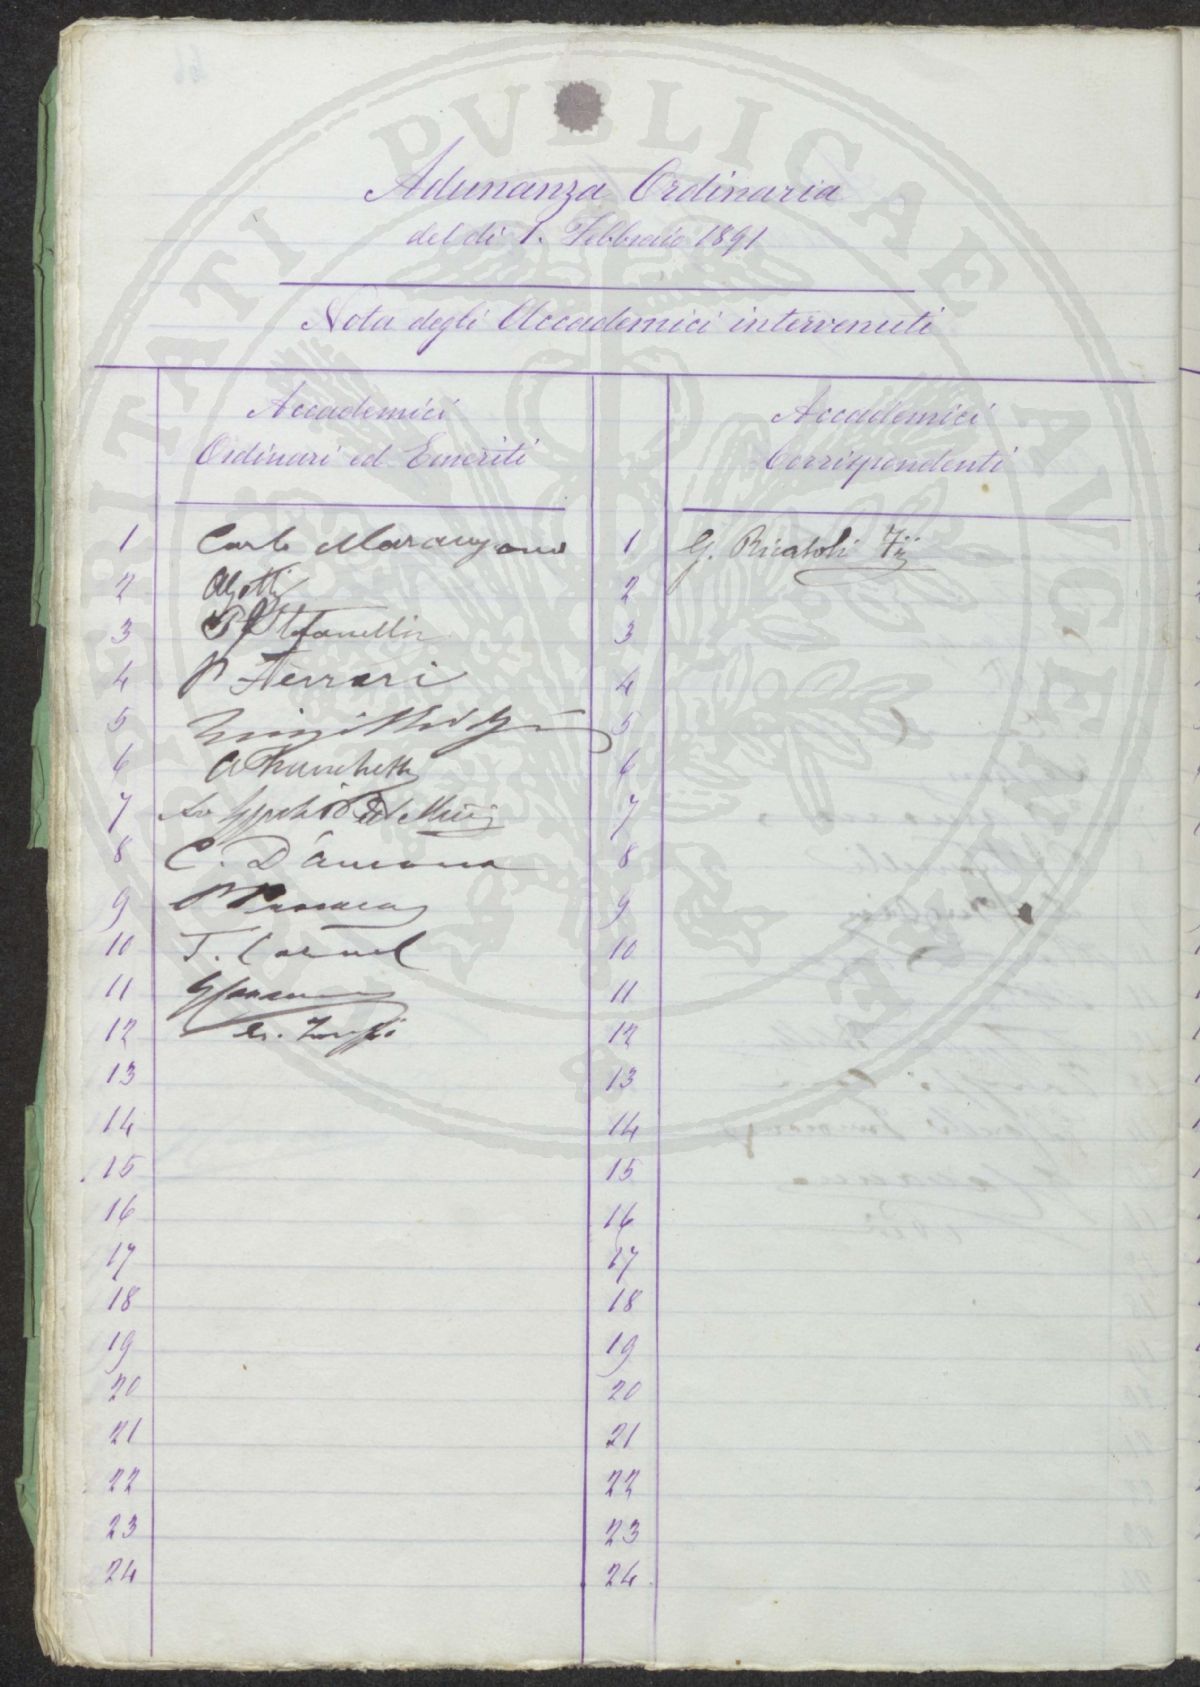 PVBLICAE
FELICITATI
AVGENDAE
Adunanza Ordinaria
del dì 1. Febbraio 1891
Nota degli Accademici intervenuti
Accademici
Ordinari ed Emeriti
Accademici
Corrispondenti
1 Carlo Marangoni 1 G. Ricasoli
2 2
3 P. Stefanelli 3
4 P Ferrari 4
5 5
6 A Franchetti 6
7 7
8 C. D'Ancona 8
9 9
10 T. Caruel 10
11 11
12 12
13 13
14 14
15 15
16 16
17 17
18 18
19 19
20 20
21 21
22 22
23 23
24 24